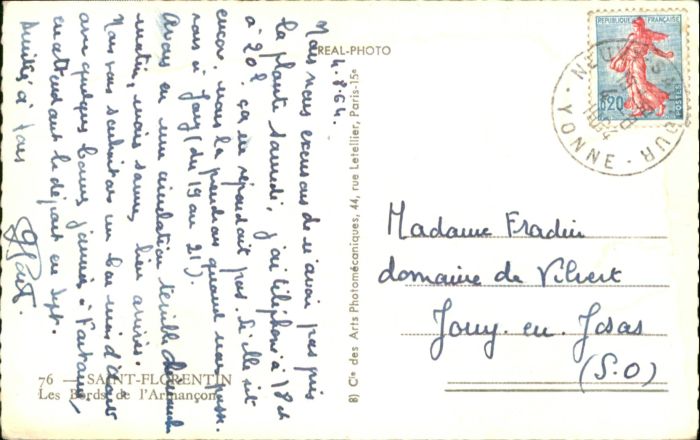 4.8.64.
Nous nous excusons de n'avoir pas pris
la plante samedi, j'ai téléphoné à 18h
à 20h ça ne répondait pas. Si elle est
encore, nous la prendrons quand nous
sous à Jouy (du 19 au 21).
Avons eu une circulation terrible dimanche
matin, mais sommes bien arrivés.
Nous vous souhaitons un bon mois d'août
avec quelques bonnes journées à
en attendant le départ en Sept.
Amitiés à tous
76 — SAINT-FLORENTIN
Les Bords de l'Armançon
REAL-PHOTO
B) Cie des Arts Photomécaniques, 44, rue Letellier, Paris-15e
REPUBLIQUE FRANÇAISE
0,20
POSTES
YONNE
Madame Fradin
domaine de Vilvert
Jouy. en. Josas
(S.O)